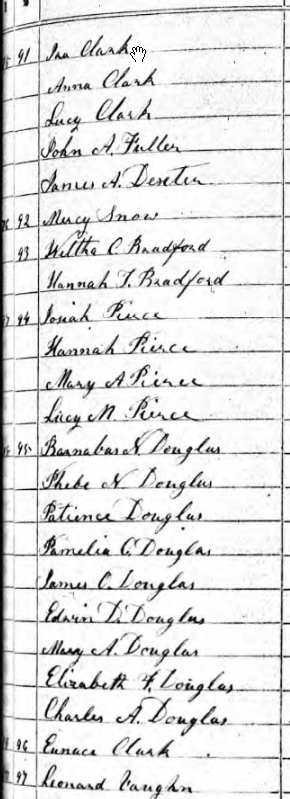 91 Ira Clark
Anna Clark
Lucy Clark
John A. Fuller
James A. Deseter
92 Mercy Snow
93 Wiltha C. Bradford
Hannah T. Bradford
94 Josiah Pierce
Hannah Pierce
Mary A Pierce
Lucy M. Pierce
95 Barnabas N. Douglas
Phebe N Douglas
Patience Douglas
Pamelia C. Douglas
James C. Douglas
Edwin D. Douglas
Mary A. Douglas
Elizabeth F. Douglas
Charles A. Douglas
96 Eunace Clark
97 Leonard Vaughn